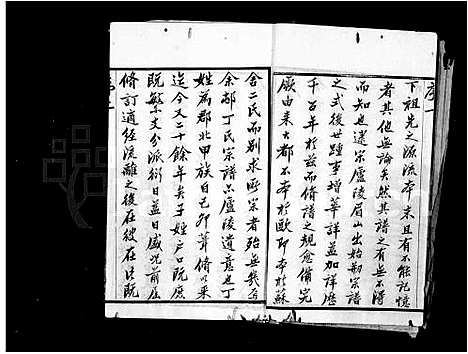 序一
下祖先之源流本末且有不能記憶
者其他無論矣然其譜之有無不得
而知也逮宋廬陵眉山出始剏宗譜
之式後世踵事增華詳益加詳歷
千百年於茲而修譜之規愈備究
厥由來大都不本於歐即本於蘇
舍二氏而別求所宗者殆無幾焉
余部丁氏宗譜亦廬陵遺意也丁
姓為郡北甲族自己卯葺修以來
迄今又三十餘年矣子姓戶口既庶
既繁支分派衍日益日盛此前屆
修訂適經流離之後在彼在此既